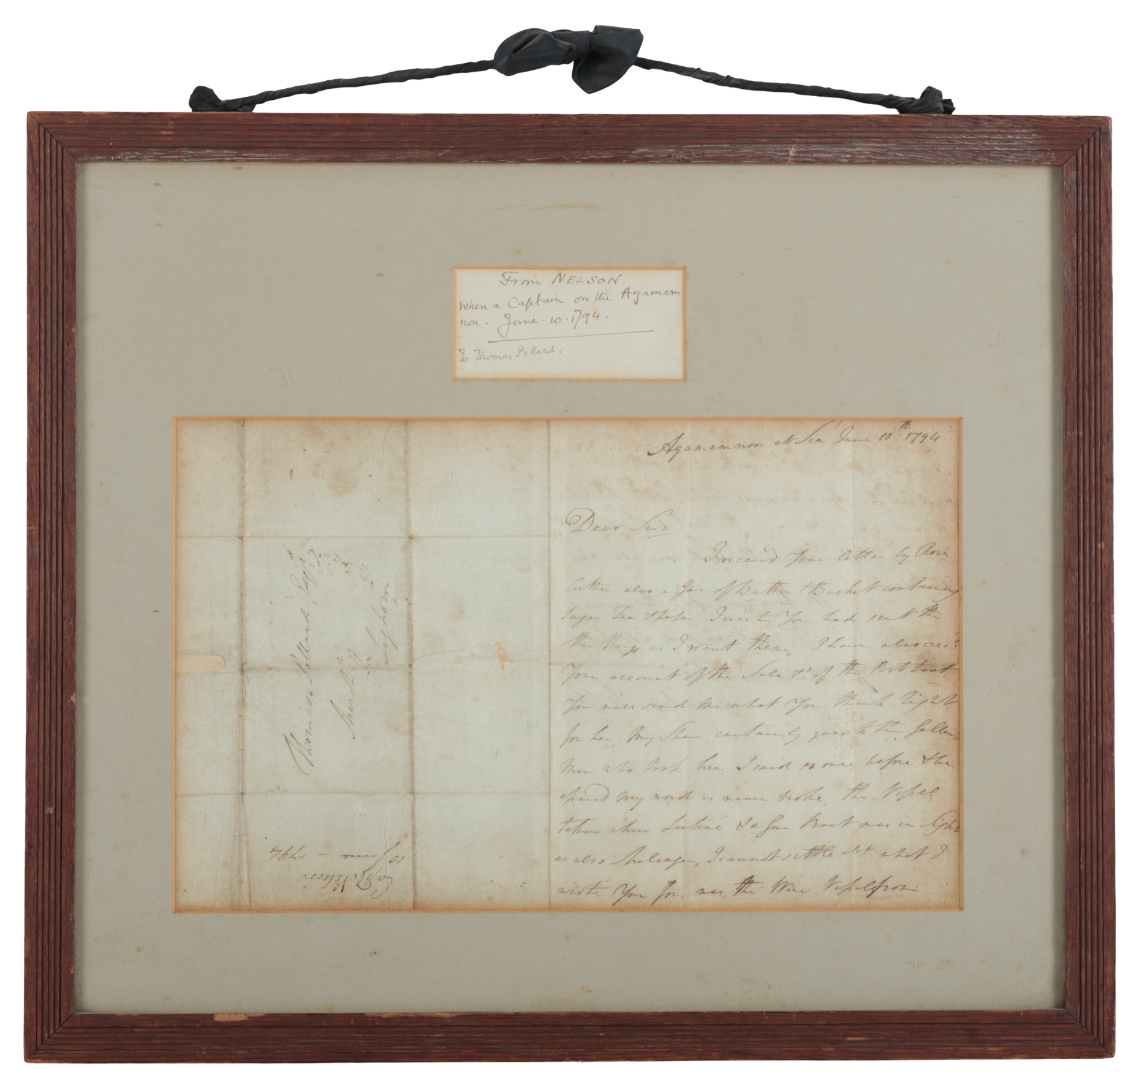 From NELSON.
When a Captain on the Agamem
non - June - 10 - 1794.
To Thomas Pollard.
Agamemnon at Sea June 10th 1794
Dear Sir,
I received your letter by
Cutter also a Jar of Butter & Basket containing
Sugar Tea I wish You had sent the
the things as I want them, I have also
Your account of the Sale of the
You will send me what You think right
for her, My Share certainly goes to the
Men who took her, I said so once before & the
my word is never broke, the Vessel
taken when Lutine & a Gun Boat was in Sight
as also I cannot settle what I
wish You for, was the Wine Vessel from
Thomas Pollard Esqr
Leghorn
Capt Nelson
10 June - 1794